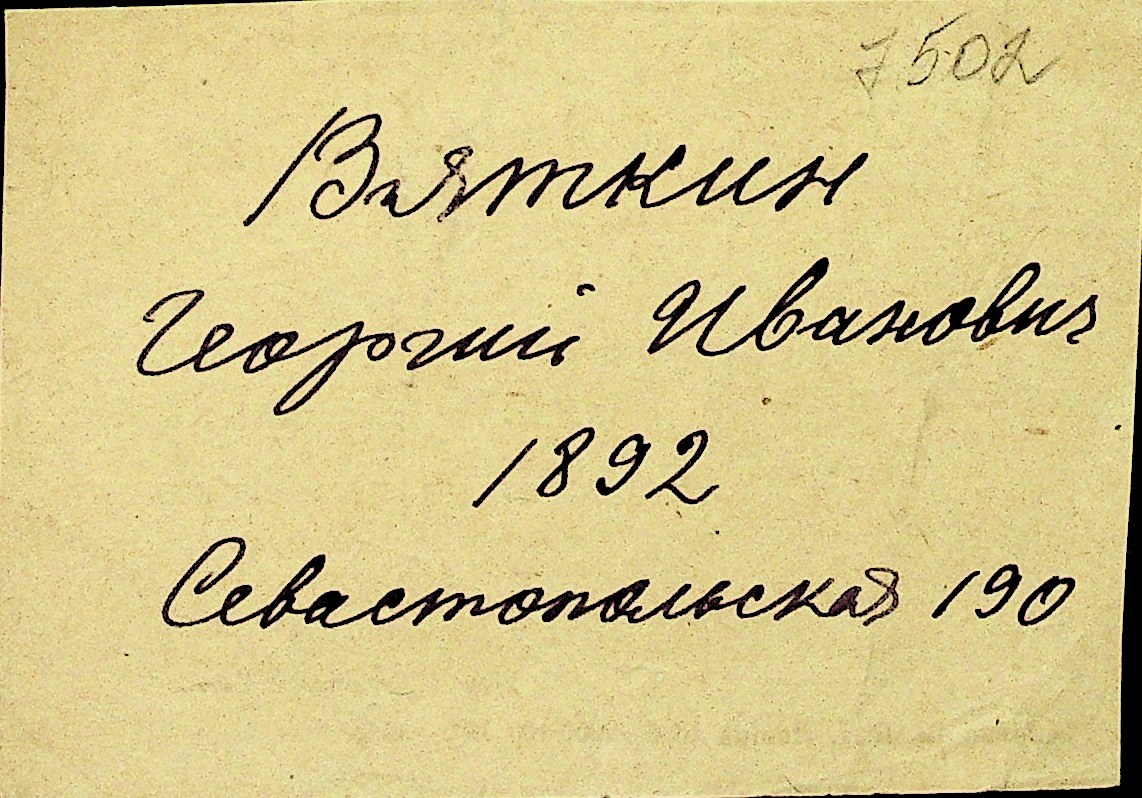 7502
Вяткин
Георгий Иванович
1892
Севастопольская 190